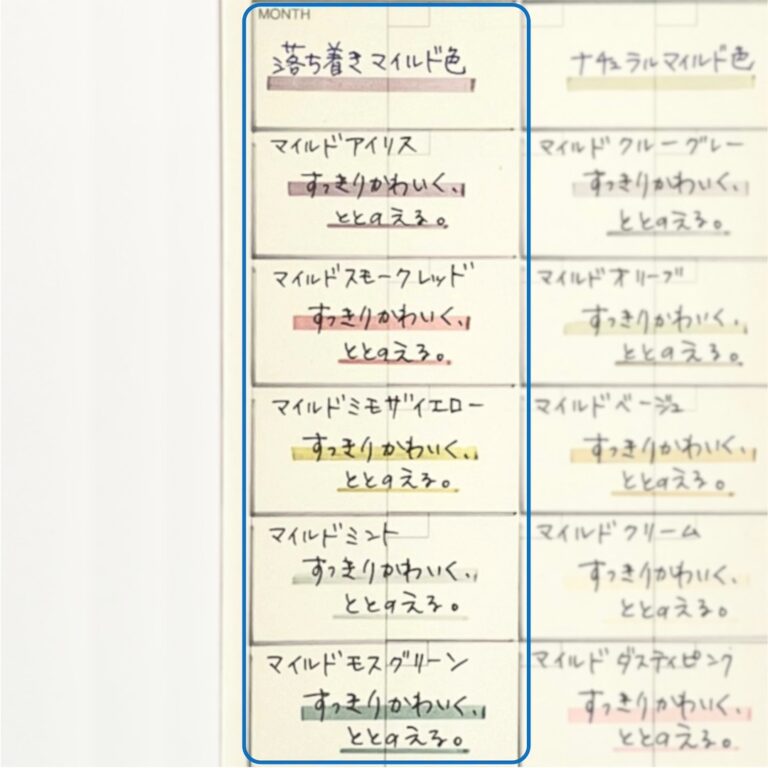 MONTH
落ち着きマイルド色
マイルドアイリス
すっきりかわいく、
ととのえる。
マイルドスモークレッド
すっきりかわいく、
ととのえる。
マイルドミモザイエロー
すっきりかわいく、
ととのえる。
マイルドミント
すっきりかわいく、
ととのえる。
マイルドモスグリーン
すっきりかわいく、
ととのえる。
ナチュラルマイルド色
マイルドクールグレー
すっきりかわいく、
ととのえる。
マイルドオリーブ
すっきりかわいく、
ととのえる。
マイルドベージュ
すっきりかわいく、
ととのえる。
マイルドクリーム
すっきりかわいく、
ととのえる。
マイルドダスティピンク
すっきりかわいく、
ととのえる。